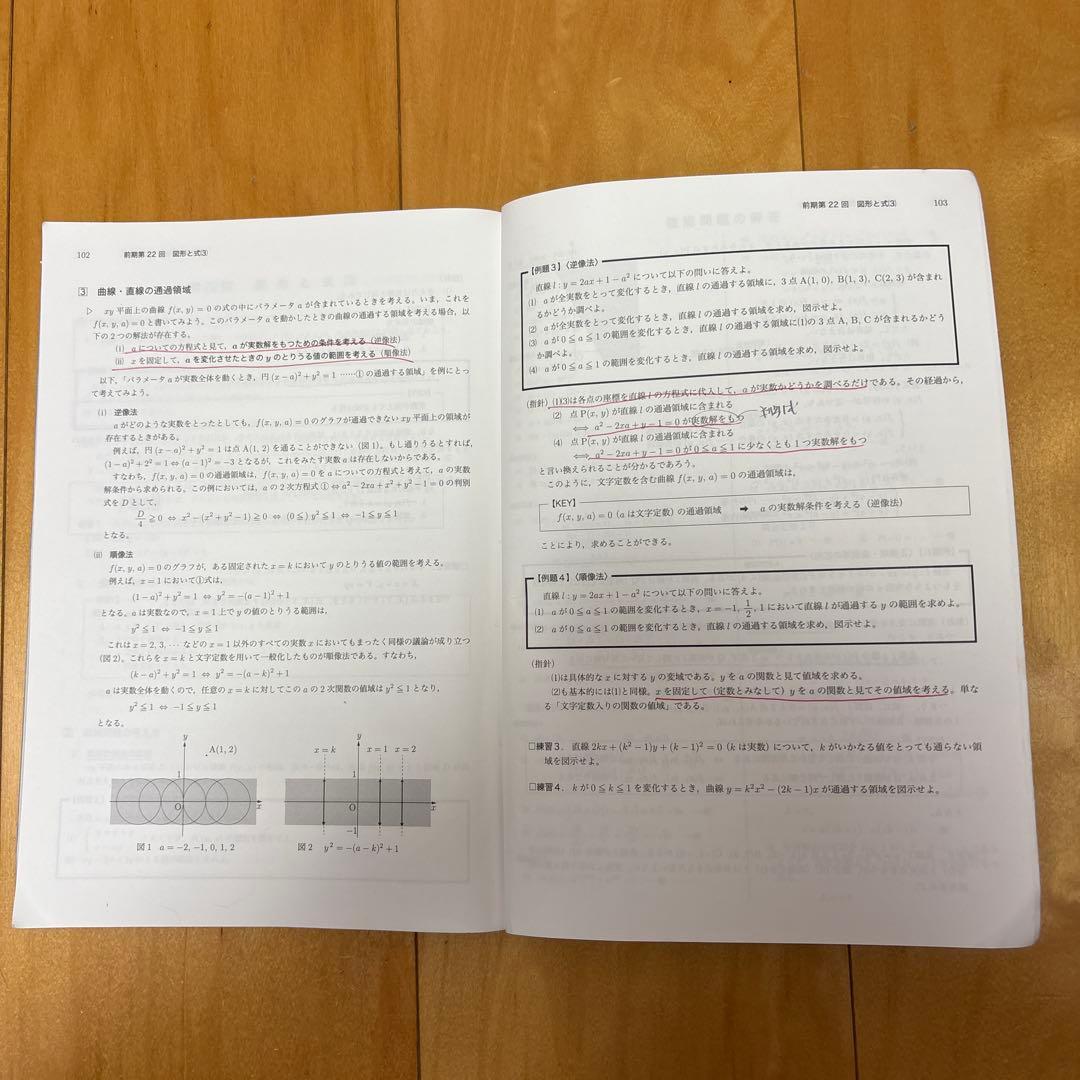 102　前期第 22 回　図形と式③
③　曲線・直線の通過領域
▷　xy 平面上の曲線 f(x, y) = 0 の式の中にパラメータ a が含まれているときを考える。いま、これを
f(x, y, a) = 0 と書いてみよう。このパラメータ a を動かしたときの曲線の通過する領域を考える場合、以
下の 2 つの解法が存在する。
(i) a についての方程式と見て、a が実数解をもつための条件を考える（逆像法）
(ii) x を固定して、a を変化させたときの y のとりうる値の範囲を考える（順像法）
以下、「パラメータ a が実数全体を動くとき、円 (x − a)² + y² = 1 ……① の通過する領域」を例にとっ
て考えてみよう。
(i)　逆像法
a がどのような実数をとったとしても、f(x, y, a) = 0 のグラフが通過できない xy 平面上の領域が
存在するときがある。
例えば、円 (x − a)² + y² = 1 は点 A(1, 2) を通ることができない（図 1）。もし通りうるとすれば、
(1 − a)² + 2² = 1 ⇔ (a − 1)² = −3 となるが、これをみたす実数 a は存在しないからである。
すなわち、f(x, y, a) = 0 の通過領域は、f(x, y, a) = 0 を a についての方程式と考えて、a の実数
解条件から求められる。この例においては、a の 2 次方程式 ① ⇔ a² − 2xa + x² + y² − 1 = 0 の判別
式を D として、
D/4 ≧ 0 ⇔ x² − (x² + y² − 1) ≧ 0 ⇔ (0 ≦) y² ≦ 1 ⇔ −1 ≦ y ≦ 1
となる。
(ii)　順像法
f(x, y, a) = 0 のグラフが、ある固定された x = k において y のとりうる値の範囲を考える。
例えば、x = 1 において①式は、
(1 − a)² + y² = 1 ⇔ y² = −(a − 1)² + 1
となる。a は実数なので、x = 1 上で y の値のとりうる範囲は、
y² ≦ 1 ⇔ −1 ≦ y ≦ 1
これは x = 2, 3, ··· などの x = 1 以外のすべての実数 x においてもまったく同様の議論が成り立つ
（図 2）。これらを x = k と文字定数を用いて一般化したものが順像法である。すなわち、
(k − a)² + y² = 1 ⇔ y² = −(a − k)² + 1
a は実数全体を動くので、任意の x = k に対してこの a の 2 次関数の値域は y² ≦ 1 となり、
y² ≦ 1 ⇔ −1 ≦ y ≦ 1
となる。
y
A(1, 2)
1
O
x
図 1　a = −2, −1, 0, 1, 2
y
x = k　x = 1　x = 2
1
O
x
−1
図 2　y² = −(a − k)² + 1
前期第 22 回　図形と式③　103
【例題 3】〈逆像法〉
直線 l : y = 2ax + 1 − a² について以下の問いに答えよ。
(1) a が全実数をとって変化するとき、直線 l の通過する領域に、3 点 A(1, 0), B(1, 3), C(2, 3) が含まれ
るかどうか調べよ。
(2) a が全実数をとって変化するとき、直線 l の通過する領域を求め、図示せよ。
(3) a が 0 ≦ a ≦ 1 の範囲を変化するとき、直線 l の通過する領域に(1)の 3 点 A, B, C が含まれるかどう
か調べよ。
(4) a が 0 ≦ a ≦ 1 の範囲を変化するとき、直線 l の通過する領域を求め、図示せよ。
(指針) (1)(3)は各点の座標を直線 l の方程式に代入して、a が実数かどうかを調べるだけである。その経過から、
(2)　点 P(x, y) が直線 l の通過領域に含まれる
⇔ a² − 2xa + y − 1 = 0 が実数解をもつ
(4)　点 P(x, y) が直線 l の通過領域に含まれる
⇔ a² − 2xa + y − 1 = 0 が 0 ≦ a ≦ 1 に少なくとも 1 つ実数解をもつ
と言い換えられることが分かるであろう。
このように、文字定数を含む曲線 f(x, y, a) = 0 の通過領域は、
【KEY】
f(x, y, a) = 0 (a は文字定数) の通過領域　➡　a の実数解条件を考える（逆像法）
ことにより、求めることができる。
【例題 4】〈順像法〉
直線 l : y = 2ax + 1 − a² について以下の問いに答えよ。
(1) a が 0 ≦ a ≦ 1 の範囲を変化するとき、x = −1, 1/2, 1 において直線 l が通過する y の範囲を求めよ。
(2) a が 0 ≦ a ≦ 1 の範囲を変化するとき、直線 l の通過する領域を求め、図示せよ。
(指針)
(1)は具体的な x に対する y の変域である。y を a の関数と見て値域を求める。
(2)も基本的には(1)と同様。x を固定して（定数とみなして）y を a の関数と見てその値域を考える。単な
る「文字定数入りの関数の値域」である。
□練習 3．直線 2kx + (k² − 1)y + (k − 1)² = 0 (k は実数) について、k がいかなる値をとっても通らない領
域を図示せよ。
□練習 4．k が 0 ≦ k ≦ 1 を変化するとき、曲線 y = k²x² − (2k − 1)x が通過する領域を図示せよ。